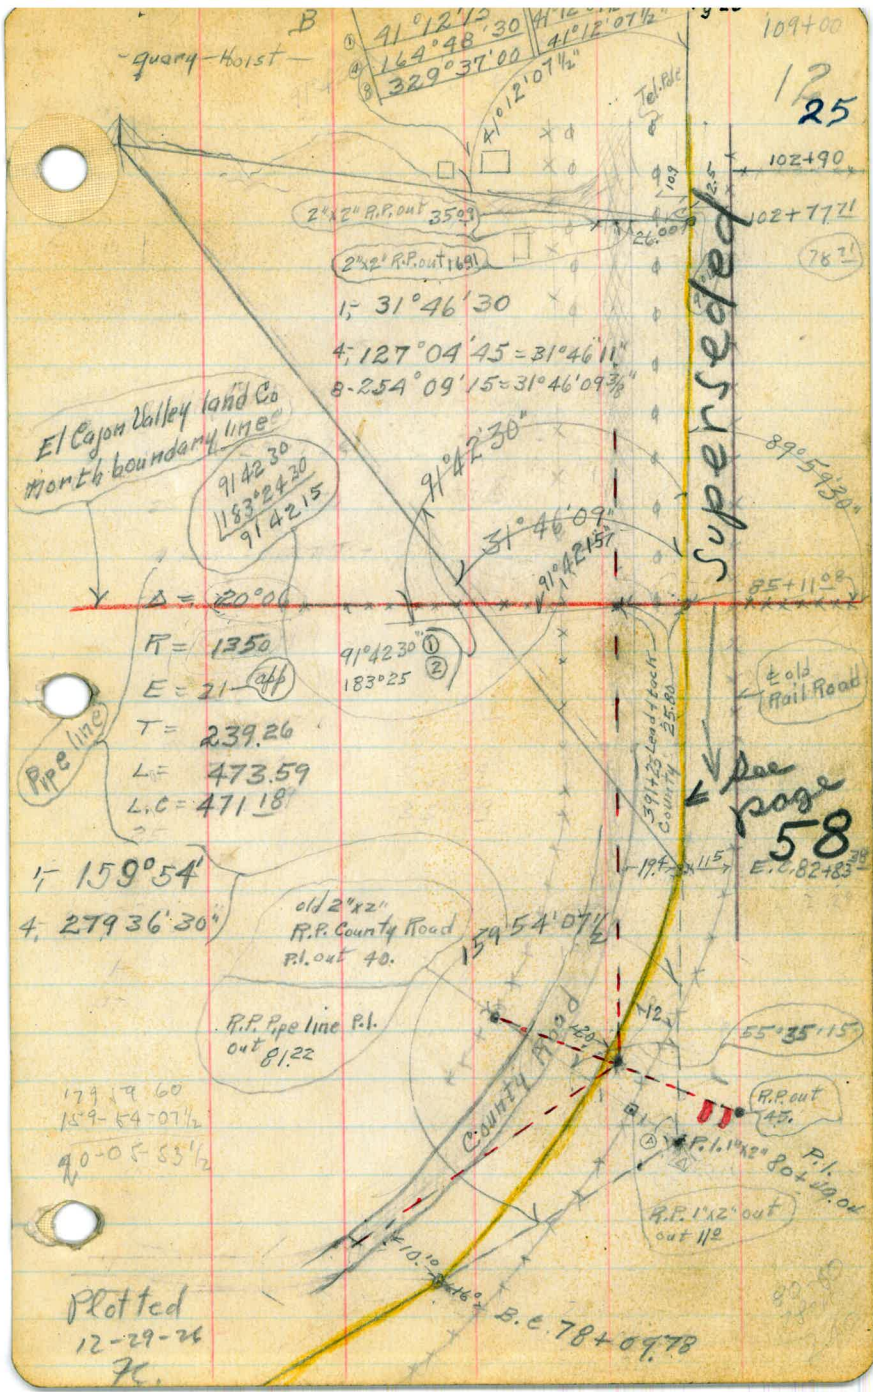 B
quary-Hoist
① 41°12'15
④ 164°48'30 41°12'07½"
⑧ 329°37'00 41°12'07½"
41°12'07½"
Tel. Pole
109+00
12
25
102+90
10.9
2.5
102+7771
26.00
78 21
2"x2" R.P. out 35.03
2"x2" R.P. out 1691
superseded
1, 31°46'30
4, 127°04'45 = 31°46'11"
8-254°09'15 = 31°46'09⅜"
El Cajon Valley land Co
north boundary line
91 42 30
183°24 30
91 42 15
91°42'30"
31°46'09"
91°42'15"
89°59'30"
85+11.08
Δ = 20°06
R = 1350
E = 21 app
T = 239.26
L = 473.59
L.C = 471.18
Pipe line
91°42'30" ①
183°25 ②
391+25 Lead + tack
County 25.80
℄ old
Rail Road
See
page
58
19.4
11.5
E.C. 82+83.38
1, 159°54'
4, 279 36'30"
old 2"x2"
R.P. County Road
P.I. out 40.
159°54'07½
R.P. Pipe line P.I.
out 81.22
County Road
20
12
55°35'15"
R.P. out
45.
P.I. 1"x2"
P.I.
80+49.04
R.P. 1"x2" out
out 11.0
179 59 60
159-54-07½
20-05-53½
10.10
16.2
B.C. 78+09.78
Plotted
12-29-26